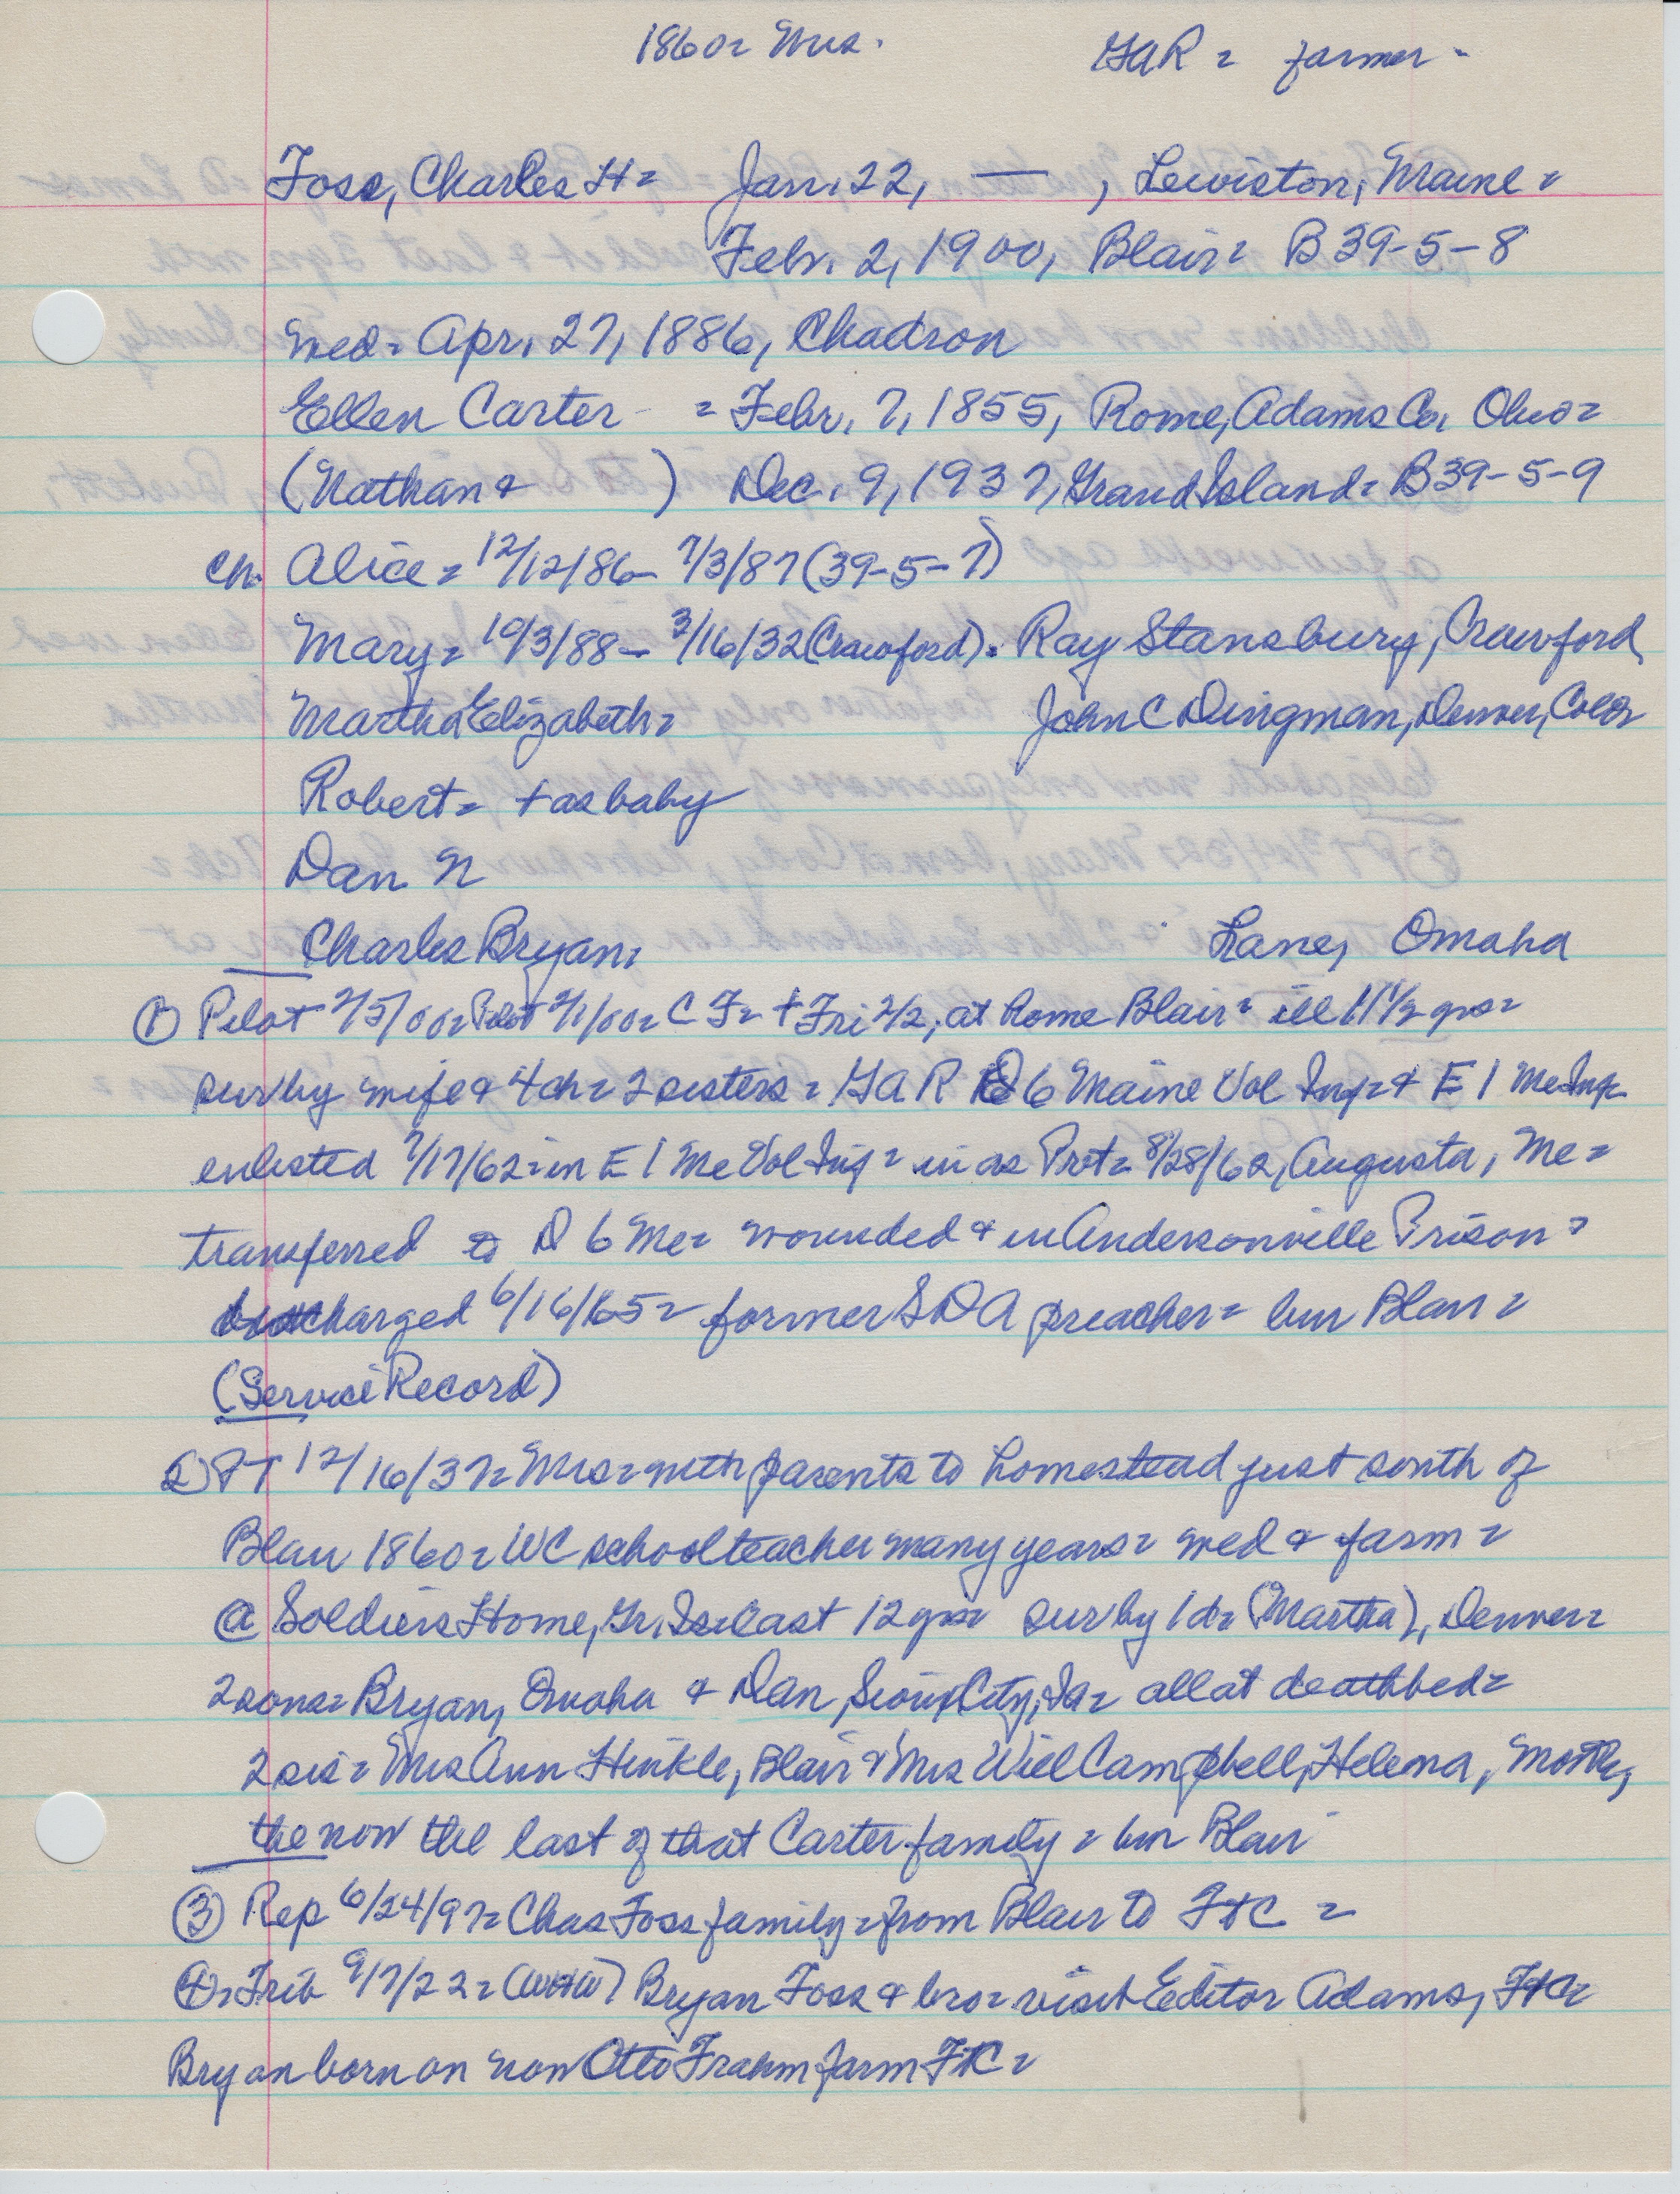 1860= Mrs.    GAR = farmer -
Foss, Charles H=    Jan. 22, — , Lewiston, Maine =
Febr. 2, 1900, Blair= B 39-5-8
med= Apr. 27, 1886, Chadron
Ellen Carter - = Febr. 7, 1855, Rome, Adams Co, Ohio=
(Nathan &    ) Dec. 9, 1937, Grand Island= B39-5-9
ch. Alice= 12/12/86- 7/3/87 (39-5-7)
Mary= 10/3/88- 3/16/32 (Crawford). Ray Stansbury, Crawford
Martha Elizabeth=    John C Dingman, Denver, Colo=
Robert= † as baby
Dan N
Charles Bryan,    Lane, Omaha
① Pilot 2/5/00= Pilot 2/1/00= C F= † Fri 2/2, at home Blair= ill 1 1/2 yrs=
sur by wife & 4 ch= 2 sisters= GAR D 6 Maine Vol Inf= & E 1 Me Inf=
enlisted 7/17/62= in E 1 Me Vol Inf= in as Prvt= 8/28/62, Augusta, Me=
transferred to D 6 Me= wounded & in Andersonville Prison=
discharged 6/16/65= former SDA preacher= bur Blair=
(Service Record)
② PT 12/16/37= Mrs= with parents to homestead just south of
Blair 1860= WC schoolteacher many years= med & farm=
@ Soldiers Home, Gr. Is= last 12 yrs= sur by 1 d= (Martha), Denver=
2 sons= Bryan, Omaha & Dan, Sioux City, Ia= all at deathbed=
2 sis= Mrs Ann Hinkle, Blair & Mrs Will Campbell, Helena, Mont,
the now the last of that Carter family= bur Blair
③ Rep 6/24/97= Chas Foss family= from Blair to FtC =
④= Trib 9/7/22= (WHW) Bryan Foss & bro= visit Editor Adams, FtC=
Bryan born on now Otto Frahm farm FtC=